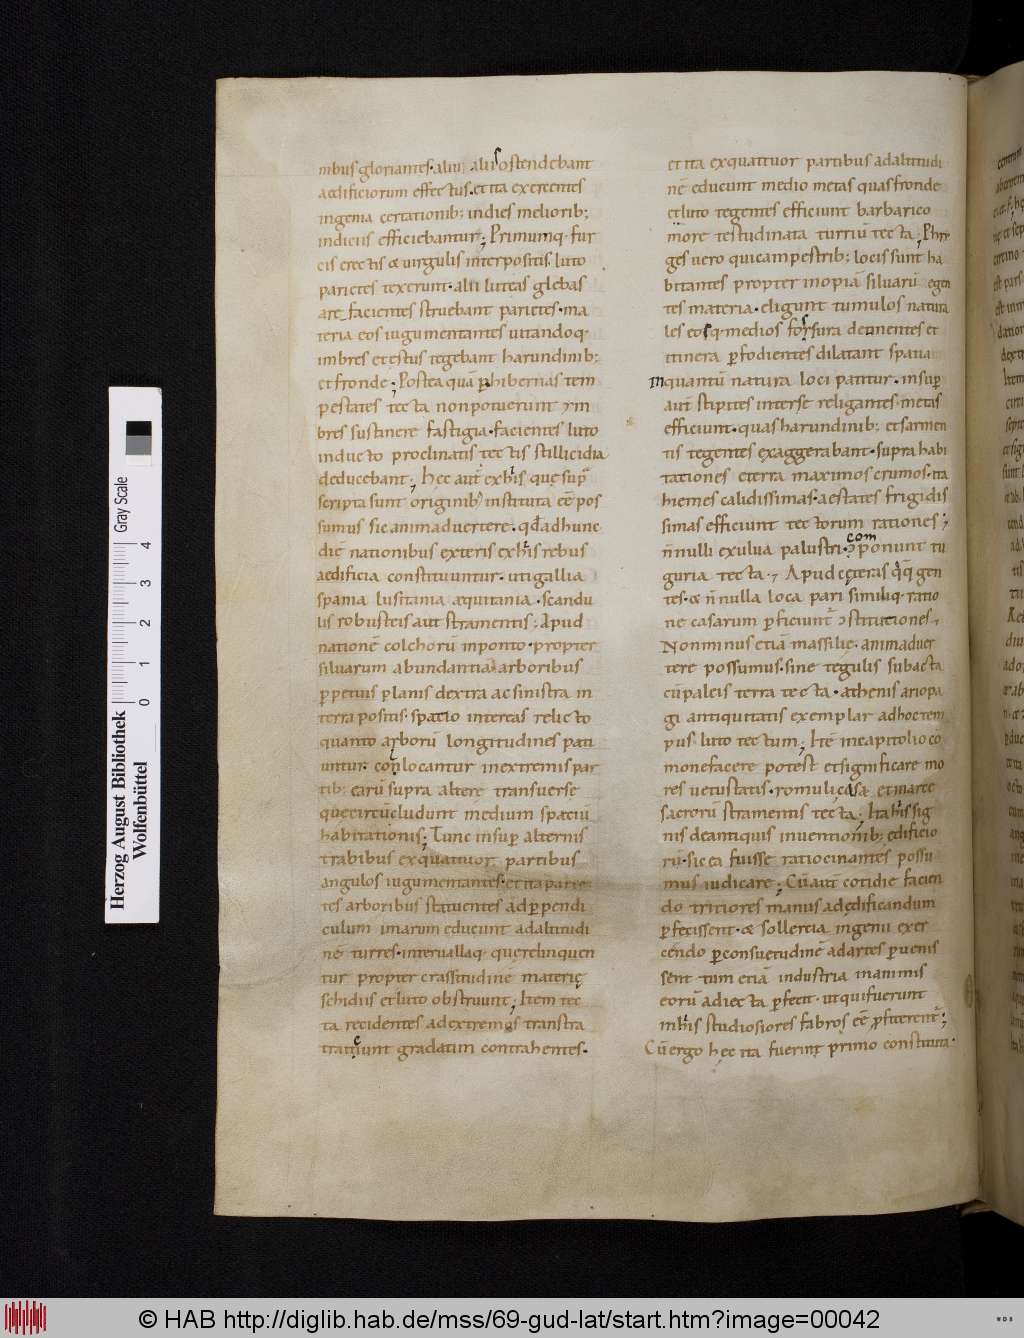 nibus gloriantes· alius aliis ostendebant
aedificiorum effectus· et ita exercentes
ingenia certationib; indies meliorib;
indiciis efficiebantur; Primumq· fur
cis erectis & virgulis interpositis luto
parietes texerunt· alii luteas glebas
are facientes struebant parietes· ma
teria eos iugumentantes vitandoq·
imbres et estus tegebant harundinib;
et fronde; Postea quā p hibernas tem
pestates tecta non potuerunt ym
bres sustinere fastigia· facientes luto
inducto proclinatis tectis stillicidia
deducebant; Hec aut̄ ex his que sup̄
scripta sunt originib; instituta eē pos
sumus sic animadvertere· qđ ad hunc
diē nationibus exteris ex his rebus
aedificia constituuntur· uti gallia
spania lusitania aequitania· scandu
lis robusteis aut stramentis; Apud
nationē colchorū in ponto· propter
silvarum abundantia arboribus
perpetuis planis dextra ac sinistra in
terra positis· spatio inter eas relicto
quanto arborū longitudines pati
untur conlocantur in extremis par
tib; earū supra altere transverse
que circūcludunt medium spaciū
habitationis; Tunc insup alternis
trabibus ex quatuor partibus
angulos iugumentantes· et ita parie
tes arboribus statuentes ad perpendi
culum imarum educunt ad altitudi
nē turres· intervallaq· que relinquen
tur propter crassitudinē materię
schidiis et luto obstruunt; Item tec
ta recidentes ad extremos transtra
traiciunt gradatim contrahentes·
et ita ex quattuor partibus ad altitudi
nē educunt medio metas quas fronde
et luto tegentes efficiunt barbarico
more testudinata turriū tecta; Phry
ges vero qui campestrib; locis sunt ha
bitantes propter inopiā silvarū egen
tes materia· eligunt tumulos natura
les eosq· medios fossura detinentes et
itinera pfodientes dilatant spatia
inquantū natura loci patitur· insup
aut̄ stipites inter se religantes· metas
efficiunt· quas harundinib; et sarmen
tis tegentes exaggerabant· supra habi
tationes e terra maximos crumos· ita
hiemes calidissimas· aestates frigidis
simas efficiunt tectorum rationes;
n̄nulli ex ulva palustri componunt tu
guria tecta; Apud ceteras qq gen
tes· & n̄nulla loca pari similiq· ratio
ne casarum pficiunt̄ ɔstitutiones;
Non minus etiā massilie· animadver
tere possumus· sine tegulis subacta
cū paleis terra tecta· athenis ariopa
gi antiquitatis exemplar ad hoc tem
pus luto tectum; Itē in capitolio co
monefacere potest et significare mo
res vetustatis· romuli casa et in arce
sacrorū stramentis tecta; Ita his sig
nis de antiquis inventionib; edificio
rū· sic ea fuisse ratiocinantes possu
mus iudicare; Cū aut̄ cotidie facien
do tritiores manus ad edificandum
pfecissent· & sollercia ingenii exer
cendo p consuetudinē ad artes pvenis
sent· tum etiā industria in animis
eorū adiecta pfecit· ut qui fuerunt
in his studiosiores fabros eē pfiterent̄;
Cū ergo hec ita fuerint primo constituta·
Herzog August Bibliothek
Wolfenbüttel
0 1 2 3 4
Gray Scale
© HAB http://diglib.hab.de/mss/69-gud-lat/start.htm?image=00042